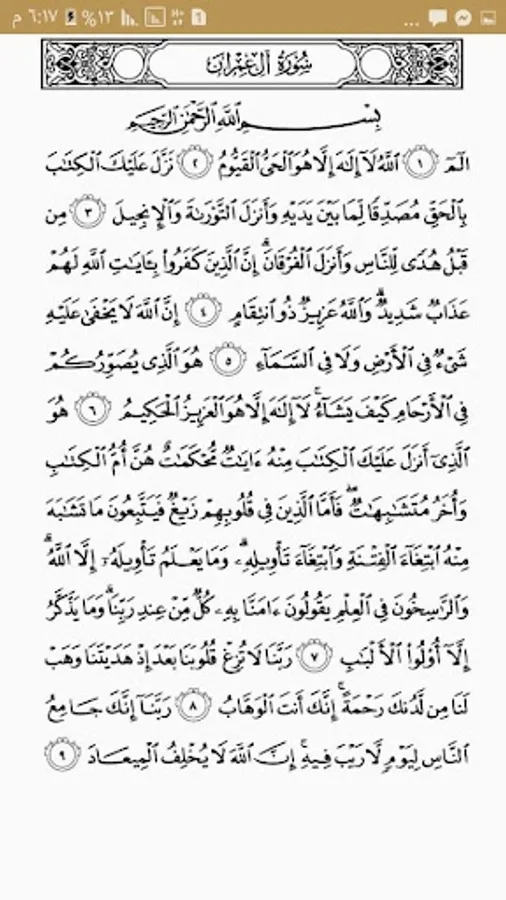 م ٦:١٧ ٪١٣
سُورَةُ آلِ عِمْرَانَ
بِسْمِ ٱللَّهِ ٱلرَّحْمَٰنِ ٱلرَّحِيمِ
الٓمٓ ١ ٱللَّهُ لَآ إِلَٰهَ إِلَّا هُوَ ٱلْحَىُّ ٱلْقَيُّومُ ٢ نَزَّلَ عَلَيْكَ ٱلْكِتَٰبَ
بِٱلْحَقِّ مُصَدِّقًا لِّمَا بَيْنَ يَدَيْهِ وَأَنزَلَ ٱلتَّوْرَىٰةَ وَٱلْإِنجِيلَ ٣ مِن
قَبْلُ هُدًى لِّلنَّاسِ وَأَنزَلَ ٱلْفُرْقَانَ ۗ إِنَّ ٱلَّذِينَ كَفَرُوا۟ بِـَٔايَٰتِ ٱللَّهِ لَهُمْ
عَذَابٌ شَدِيدٌ ۗ وَٱللَّهُ عَزِيزٌ ذُو ٱنتِقَامٍ ٤ إِنَّ ٱللَّهَ لَا يَخْفَىٰ عَلَيْهِ
شَىْءٌ فِى ٱلْأَرْضِ وَلَا فِى ٱلسَّمَآءِ ٥ هُوَ ٱلَّذِى يُصَوِّرُكُمْ
فِى ٱلْأَرْحَامِ كَيْفَ يَشَآءُ ۚ لَآ إِلَٰهَ إِلَّا هُوَ ٱلْعَزِيزُ ٱلْحَكِيمُ ٦ هُوَ
ٱلَّذِىٓ أَنزَلَ عَلَيْكَ ٱلْكِتَٰبَ مِنْهُ ءَايَٰتٌ مُّحْكَمَٰتٌ هُنَّ أُمُّ ٱلْكِتَٰبِ
وَأُخَرُ مُتَشَٰبِهَٰتٌ ۖ فَأَمَّا ٱلَّذِينَ فِى قُلُوبِهِمْ زَيْغٌ فَيَتَّبِعُونَ مَا تَشَٰبَهَ
مِنْهُ ٱبْتِغَآءَ ٱلْفِتْنَةِ وَٱبْتِغَآءَ تَأْوِيلِهِۦ ۗ وَمَا يَعْلَمُ تَأْوِيلَهُۥٓ إِلَّا ٱللَّهُ ۗ
وَٱلرَّٰسِخُونَ فِى ٱلْعِلْمِ يَقُولُونَ ءَامَنَّا بِهِۦ كُلٌّ مِّنْ عِندِ رَبِّنَا ۗ وَمَا يَذَّكَّرُ
إِلَّآ أُو۟لُوا۟ ٱلْأَلْبَٰبِ ٧ رَبَّنَا لَا تُزِغْ قُلُوبَنَا بَعْدَ إِذْ هَدَيْتَنَا وَهَبْ
لَنَا مِن لَّدُنكَ رَحْمَةً ۚ إِنَّكَ أَنتَ ٱلْوَهَّابُ ٨ رَبَّنَآ إِنَّكَ جَامِعُ
ٱلنَّاسِ لِيَوْمٍ لَّا رَيْبَ فِيهِ ۚ إِنَّ ٱللَّهَ لَا يُخْلِفُ ٱلْمِيعَادَ ٩